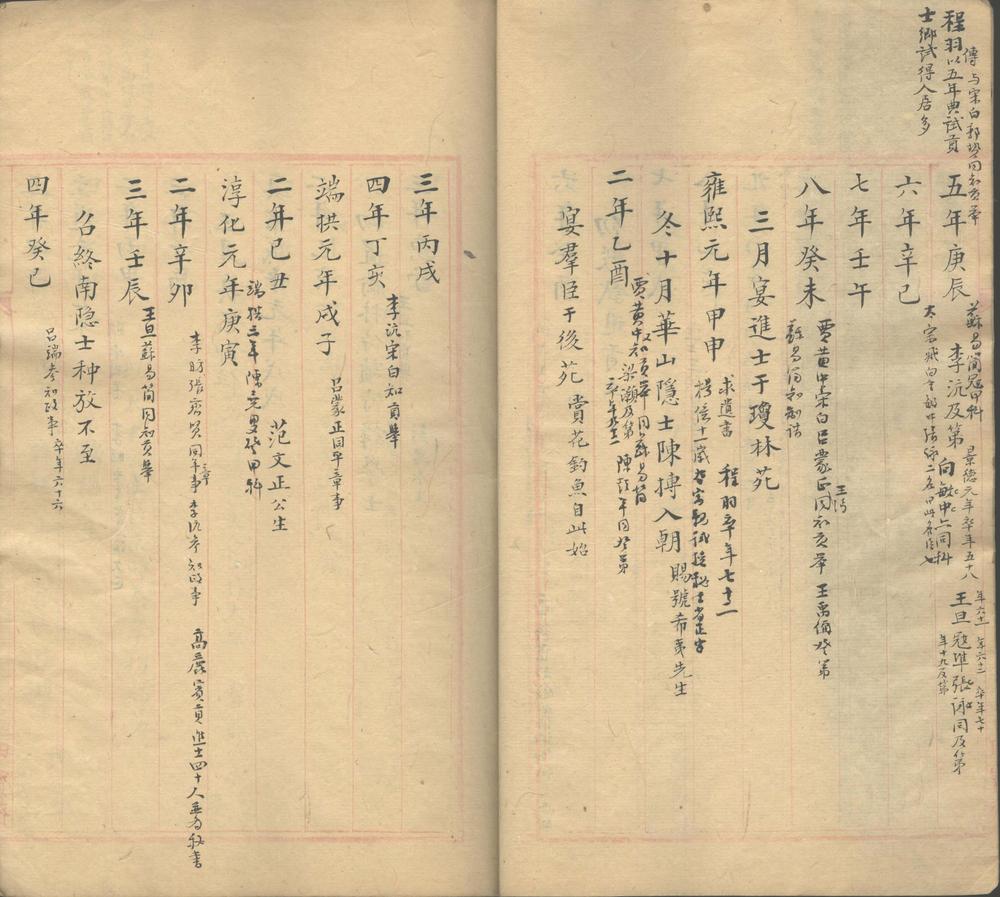 程羽以五年典試貢
士鄉試得人居多
傳与宋白
五年庚辰
蘇易簡冠甲科
李沆及第
景德元年卒年五十八
向敏中六同科
王旦寇準張詠同及第
年十九及第
六年辛巳
七年壬午
八年癸未
賈黃中宋白呂蒙正同知貢舉 王禹偁登第
蘇易簡知制誥
三月宴進士于瓊林苑
雍熙元年甲申
求遺書
程羽卒年七十二
冬十月華山隱士陳摶入朝
賜號希夷先生
二年乙酉
賈黃中知貢舉
梁灝及第
宴羣臣于後苑賞花釣魚自此始
三年丙戌
四年丁亥
李沆宋白知貢舉
端拱元年戊子
呂蒙正同平章事
二年己丑
范文正公生
淳化元年庚寅
端拱二年陳堯叟登甲科
二年辛卯
李昉張齊賢同平章事李沆參知政事
高麗賓貢進士四十人並為秘書
三年壬辰
王旦蘇易簡同知貢舉
召終南隱士种放不至
四年癸巳
呂端參知政事
卒年六十六